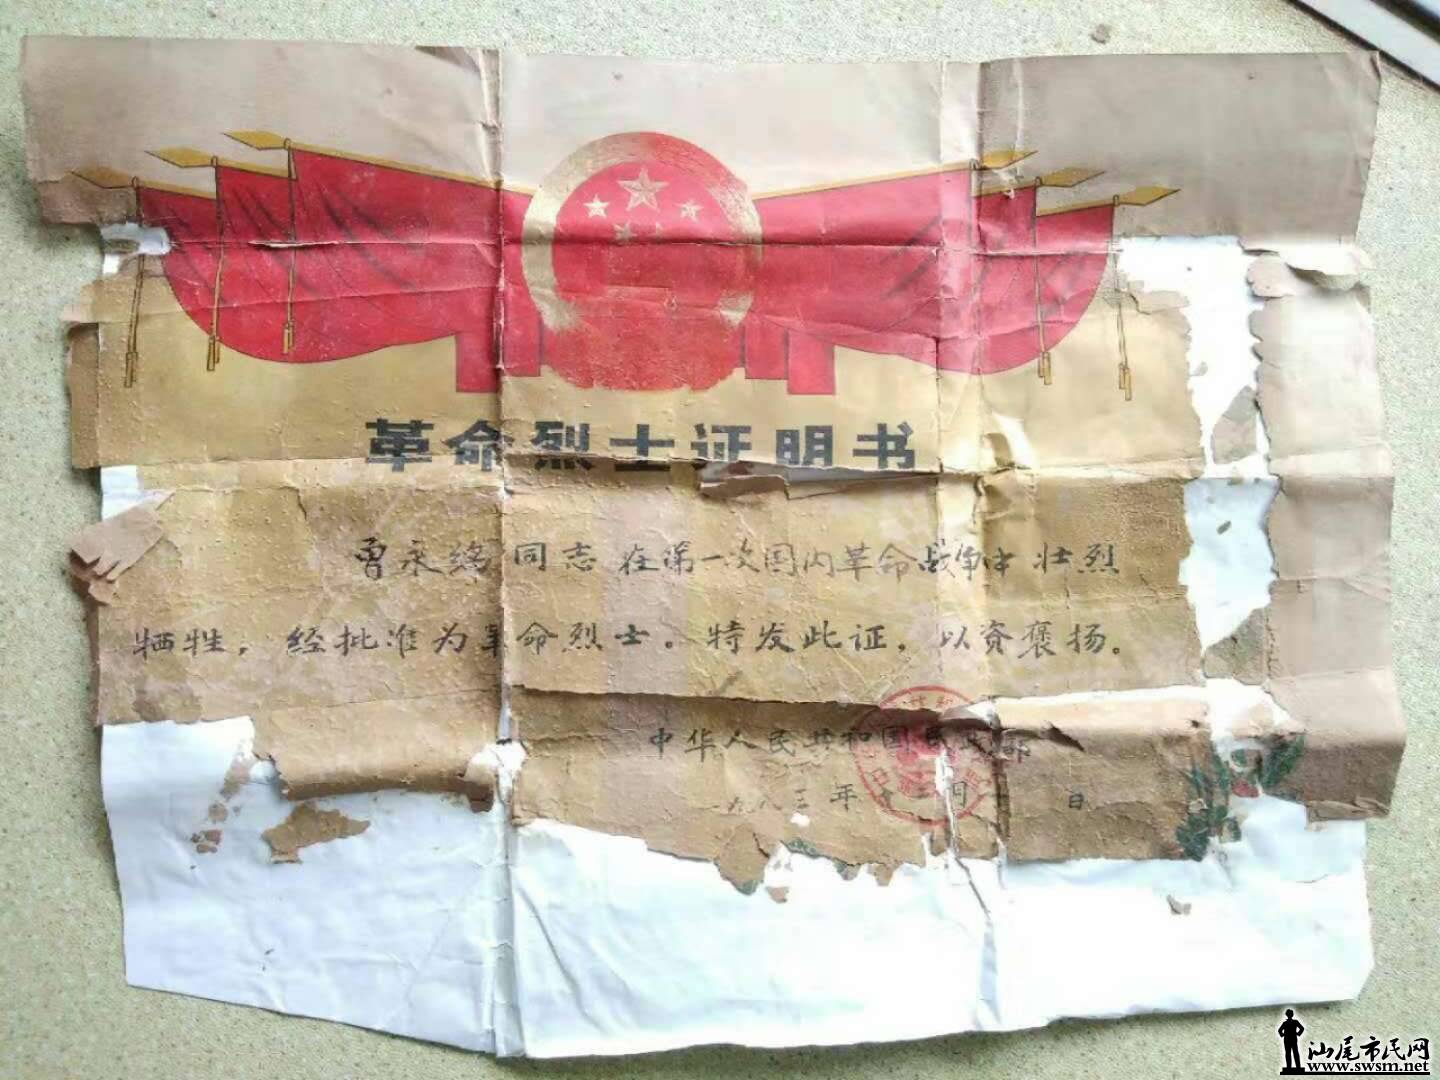 革命烈士证明书
曾永 同志 在第一次国内革命战争中 壮烈
牺牲，经批准为革命烈士。特发此证，以资褒扬。
中华人民共和国民政部
一九八三 年 十二 月 一 日
汕尾市民网
www.swsm.net